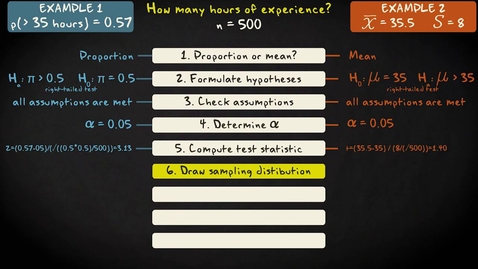 EXAMPLE 1
p(> 35 hours) = 0.57
How many hours of experience?
n = 500
EXAMPLE 2
X = 35.5 S = 8
Proportion
1. Proportion or mean?
Mean
Hₐ: π > 0.5 H₀: π = 0.5
right-tailed test
2. Formulate hypotheses
H₀: μ = 35 Hₐ: μ > 35
right-tailed test
all assumptions are met
3. Check assumptions
all assumptions are met
α = 0.05
4. Determine α
α = 0.05
Z=(0.57-05)/(√((0.5*0.5)/500))=3.13
5. Compute test statistic
t=(35.5-35) / (8/(√500))=1.40
6. Draw sampling distibution